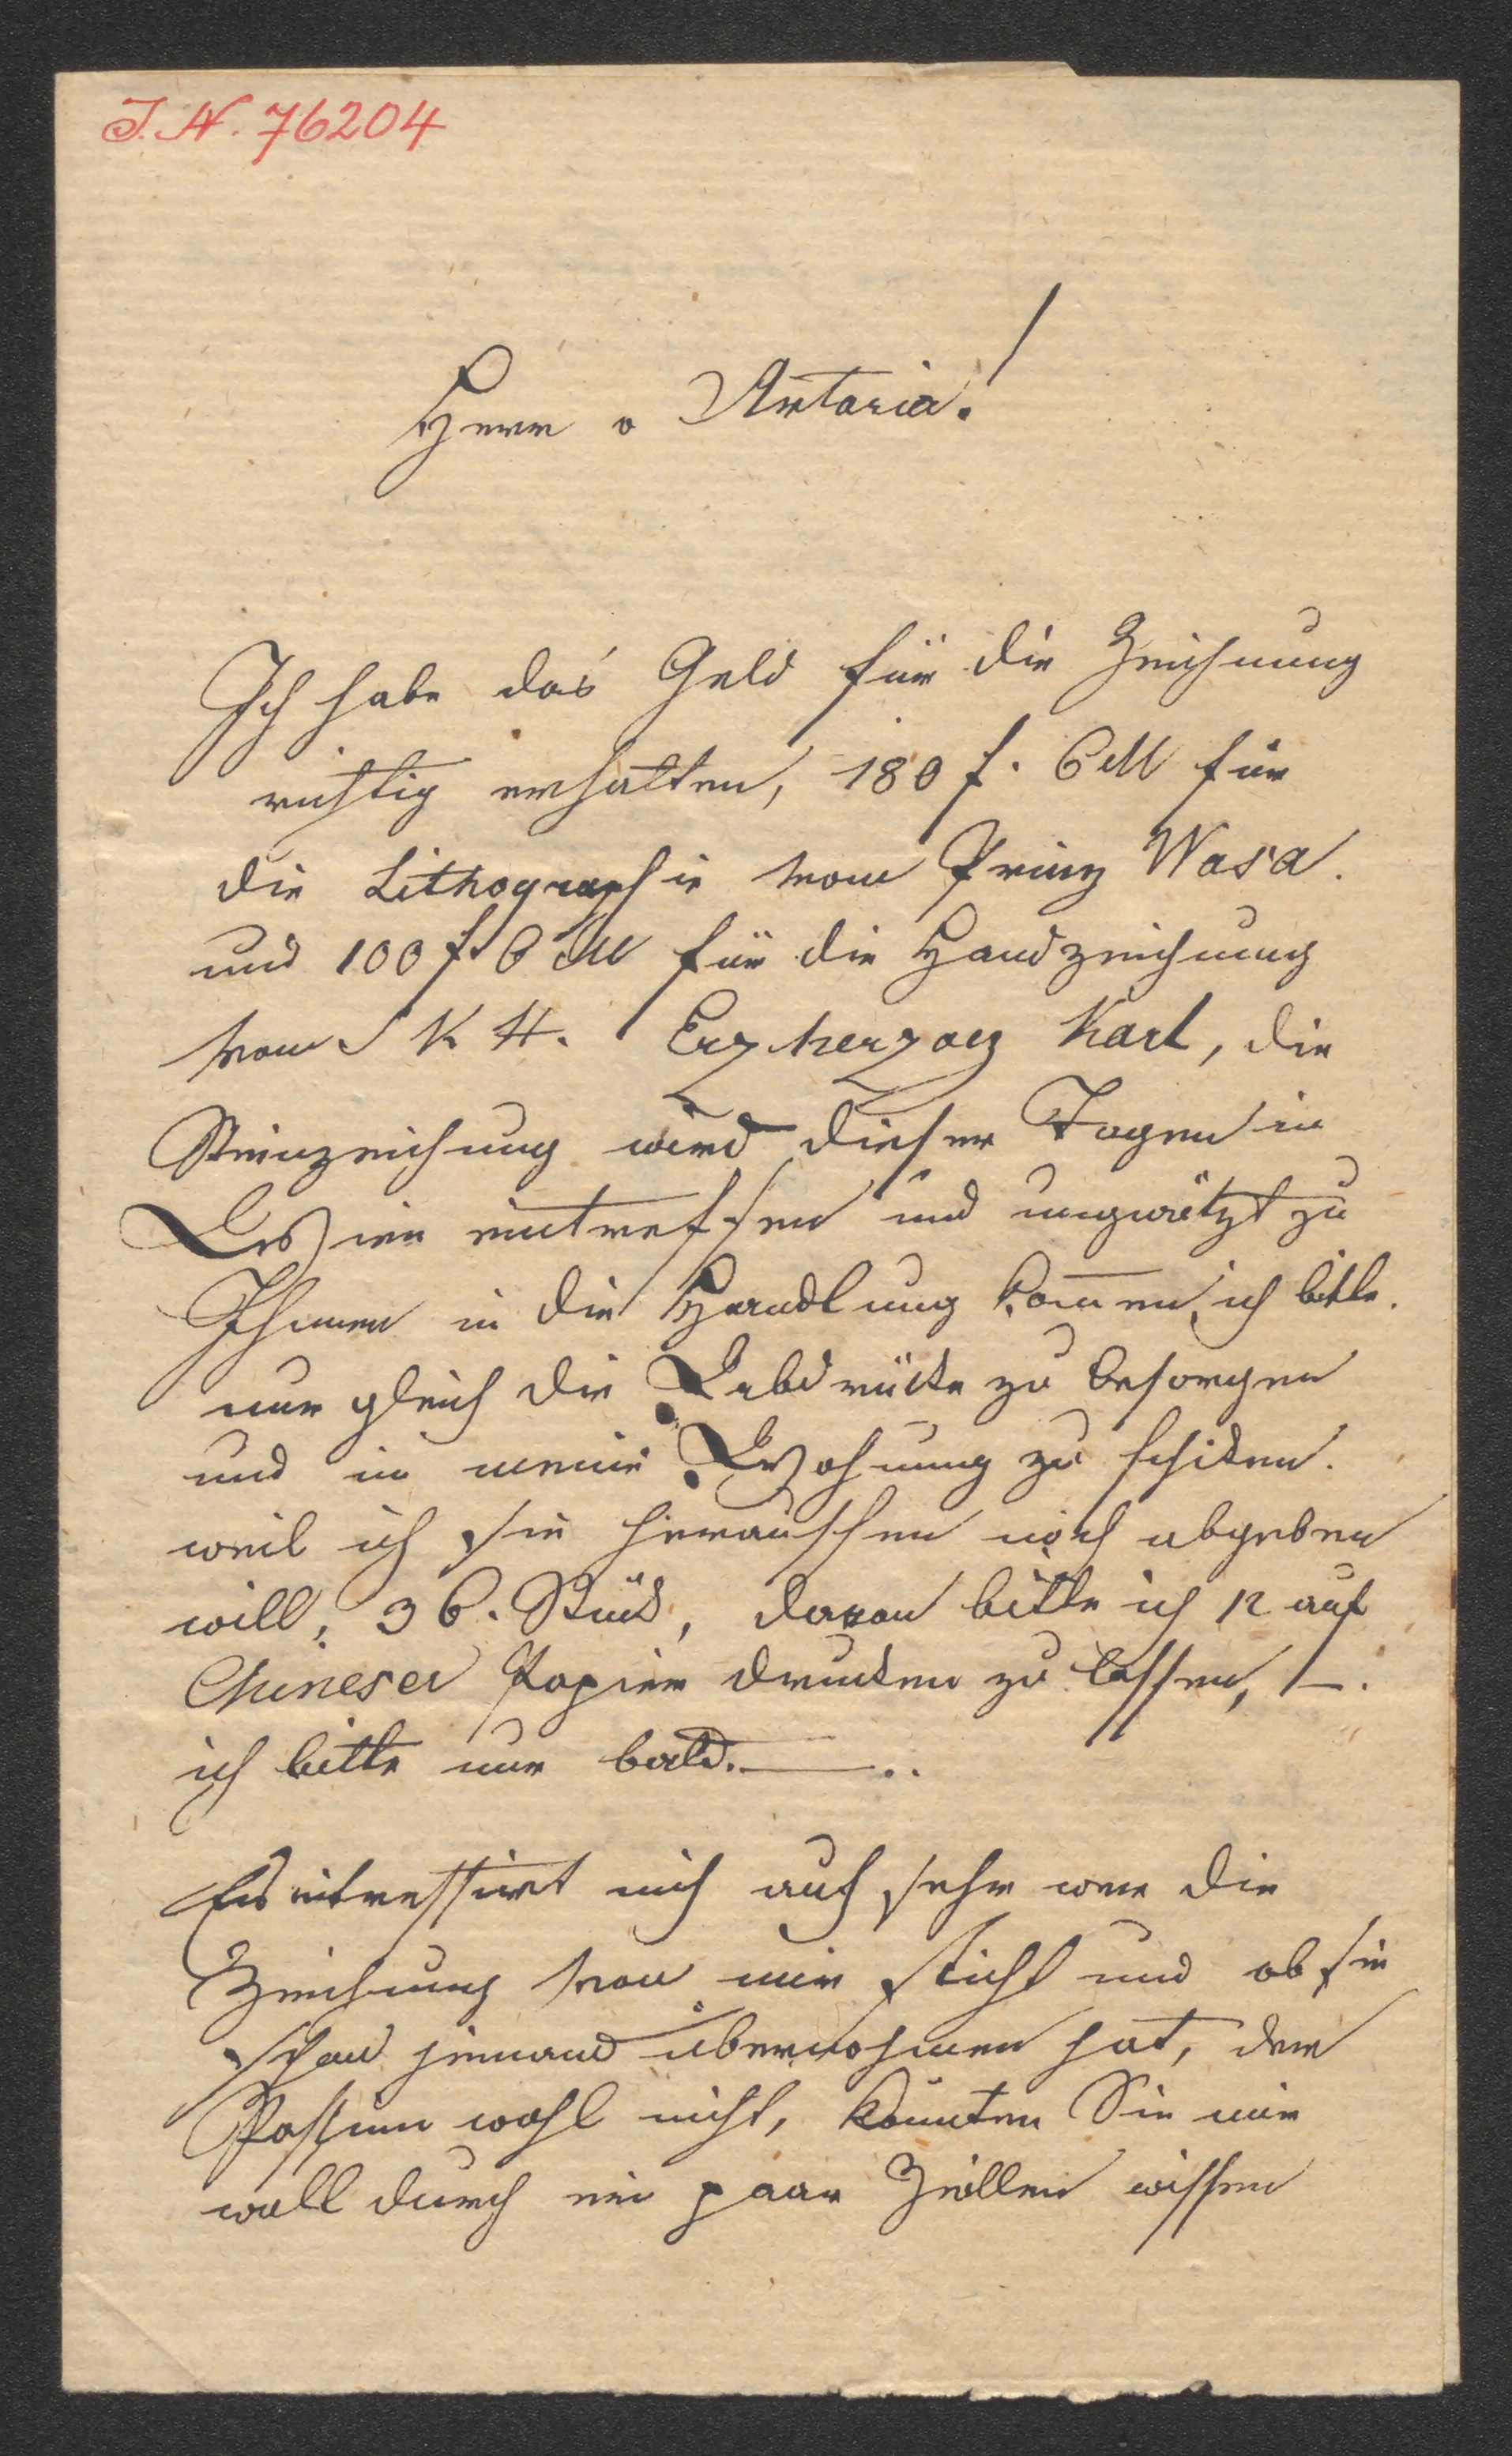 J. N. 76204
Herr v Artaria!
Ich habe das Geld für die Zeichnung
richtig erhalten, 180 f. CM für
die Lithographie vom Prinz Wasa.
und 100 f. CM für die Handzeichnung
vom S K H. Erzherzog Karl, die
Steinzeichnung wird dieser Tagen in
Wien eintreffen und ungeätzt zu
Ihnen in die Handlung kom̄en, ich bitte.
nur gleich die Abdrücke zu besorgen
und in meine Wohnung zu schiken.
weil ich sie heraussen noch abgeben
will, 36. Stück, davon bitte ich 12 auf
Chineser Papier drucken zu lassen, –.
ich bitte nur bald. — ..
Es intressirt mich auch sehr wer die
Zeichnung von mir sticht und ob sie
schon jemand übernohmen hat, der
wohl nicht, könnten Sie mir
woll durch ein paar Zeillen wissen